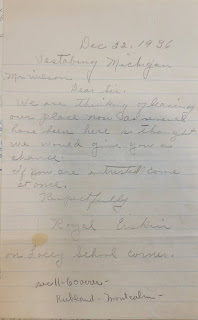 Dec 22, 1936
Vestaburg Michigan
Mr Wilson.
Dear Sir.
We are thinking of leasing
our place now as several
have been here so thought
we would give you a
chance.
if you are intrested come
at once.
Respectfully
Royal
on School corner.
Richland - Montcalm -